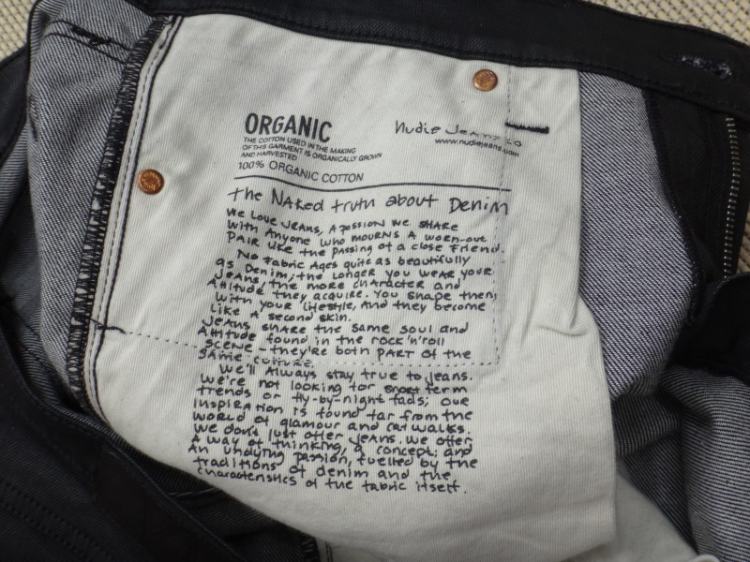 ORGANIC
THE COTTON USED IN THE MAKING
OF THIS GARMENT IS ORGANICALLY GROWN
AND HARVESTED
100% ORGANIC COTTON
Nudie Jeans co
www.nudiejeans.com
the Naked truth about Denim
We Love Jeans, A passion we share
with Anyone who mourns A worn-out
PAIR Like the passing of a close Friend.
No Fabric Ages quite as beautifully
as Denim; the Longer you wear your
Jeans, the more character and
Attitude they acquire. You shape them,
with your lifestyle, And they become
Like A second skin.
Jeans share the same soul and
Attitude found in the rock'n'roll
scene - they're both PART of the
same culture.
We'll Always stay true to jeans.
We're not looking for short term
trends or fly-by-night fads; our
inspiration is found far from the
world of glamour and catwalks.
We don't just offer jeans. We offer
A way of thinking, a concept, and
An undying passion, fuelled by the
traditions of denim and the
characteristics of the fabric itself.